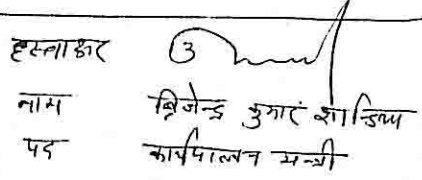 हस्ताक्षर
नाम ब्रिजेन्द्र कुमार शान्डिल्य
पद कार्यपालन मन्त्री